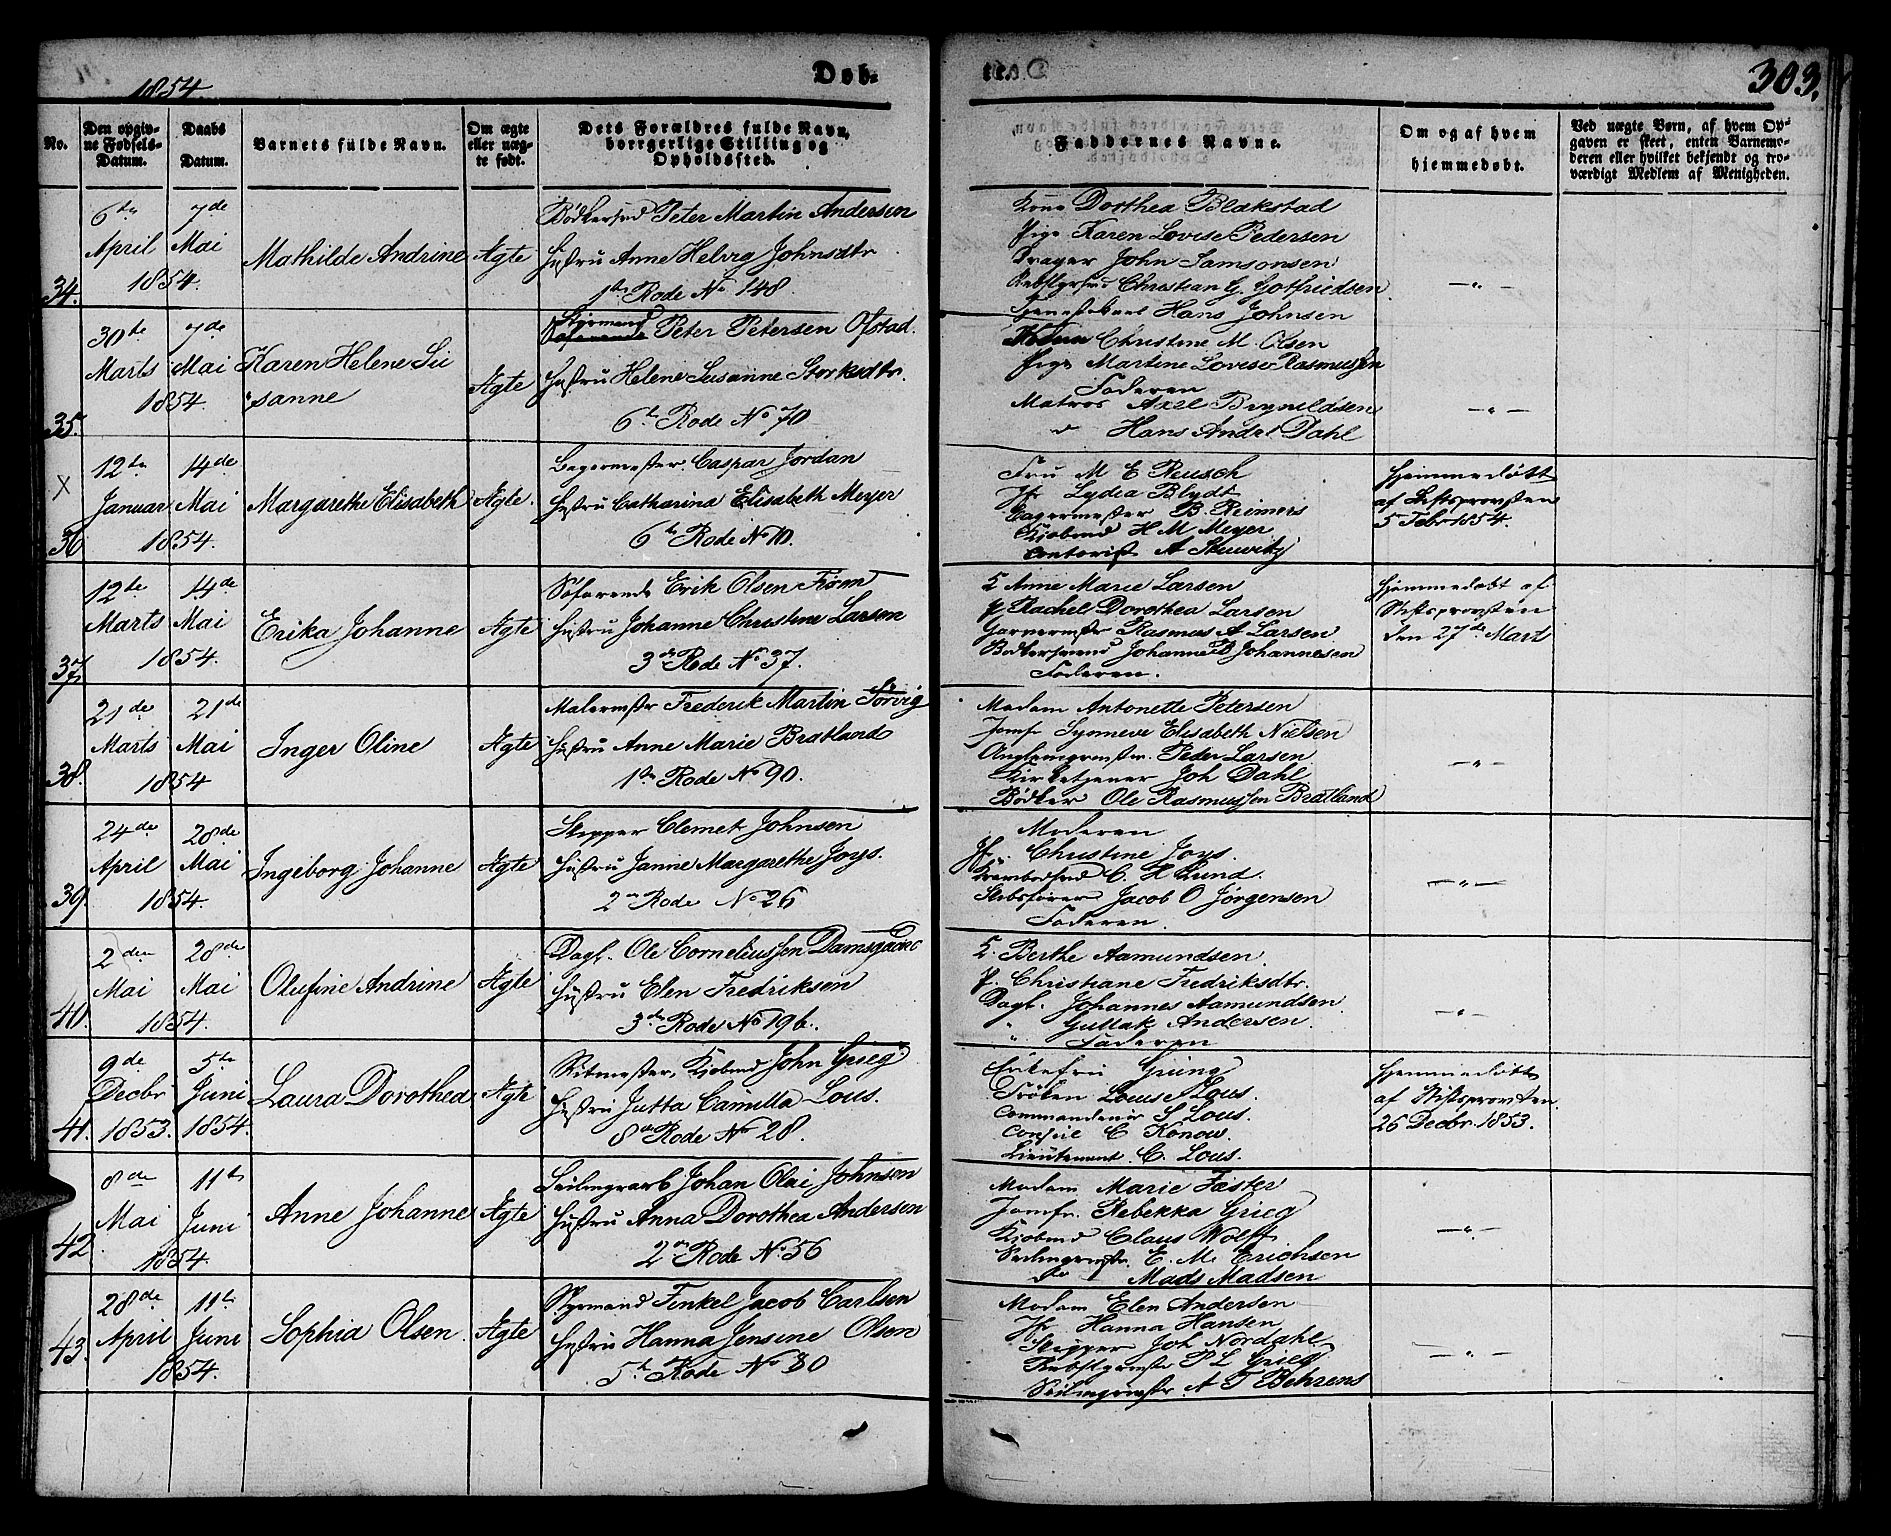 1854.
Døb-
303.
No.
Den opgiv-
ne Fødsels-
Datum.
Daabs
Datum.
Barnets fulde Navn.
Om ægte
eller uæg-
te født.
Dets Forældres fulde Navn,
borgerlige Stilling og
Opholdssted.
Faddernes Navne.
Om og af hvem
hjemmedøbt.
Ved uægte Børn, af hvem Op-
gaven er skeet, enten Barnemo-
deren eller hvilket bekjendt og tro-
værdigt Medlem af Menigheden.
34.
6te April 1854.
7de Mai
Mathilde Andrine
Ægte
Bødkersvd Peter Martin Andersen
Hustru Anne Helvig Johnsdtr
1ste Rode No 148.
Kone Dorthea Blakstad
Pige Karen Lovise Pedersen
Drager John Samsonsen
Christian G. Gotfriedsen
Hans Johnsen
— " —
35.
30te Marts 1854.
7de Mai
Karen Helene Su
sanne
Ægte
Styrmand
Peter Petersen Ofstad.
Hustru Helene Susanne Storksdtr.
6te Rode No 70
Christine M. Olsen
Pige Martine Lovise Rasmussen
Faderen
Matros Axel Brynildsen
" Hans Andr. Dahl
— " —
X
36
12te Januar 1854.
14de Mai
Margarethe Elisabeth
Ægte.
Bagermester Caspar Jordan
Hustru Catharina Elisabeth Meyer
6te Rode No 10.
Fru M E Reusch
Jfr Lydia Blydt
Bagermester B. Reimers
Kjøbmd H M Meyer
Contorist A Steuwitz
Hjemmedøbt
af Stiftsprovsten
5 Febr 1854.
37
12te Marts 1854.
14de Mai
Erika Johanne
Ægte
Søfarende Erik Olsen From
Hustru Johanne Christine Larsen
3die Rode No 37.
K Anne Marie Larsen
P Rachel Dorothea Larsen
Garvermstr Rasmus A Larsen
Bødkersvend Johannes B Johannesen
Faderen.
Hjemmedøbt af
Stiftsprovsten
den 27de Marts
38.
21de Marts 1854
21de Mai
Inger Oline
Ægte
Malermstr Frederik Martin Sørvig
Hustru Anne Marie Bratland
1ste Rode No 90.
Madam Antonette Petersen
Jomfr Synneve Elisabeth Nielsen
Peder Larsen
Kirketjener Joh Dahl
Bødker Ole Rasmussen Bratland
— " —
39
24de April 1854.
28de Mai
Ingeborg Johanne
Ægte
Skipper Clemet Johnsen
Hustru Janne Margarethe Joys.
2den Rode No 26
Moderen
Jfr. Christine Joys.
Krambodsvd C. H Lund.
Skibsfører Jacob O Jørgensen
Faderen.
— " —
40.
2den Mai 1854.
28de Mai
Olufine Andrine
Ægte
Dagl. Ole Corneliussen Damsgaard
Hustru Elen Fredriksen
3die Rode No 196.
K. Berthe Aamundsen.
P. Christiane Fredriksdtr.
Dagl. Johannes Aamundsen
" Gullak Andersen.
" Faderen
— " —
41.
9de Decbr 1853.
5te Juni 1854.
Laura Dorothea
Ægte
Kjøbmd John Grieg
Hustru Jutta Camilla Lous.
8de Rode No 28.
Enkefru Grung
Frøken Louise Lous.
Commandeur S Lous.
Consul C Konow.
Lieutenant C. Lous.
Hjemmedøbt
af Stiftsprovsten
26 Decbr 1853.
42
8de Mai 1854.
11te Juni
Anne Johanne
Ægte
Johan Olai Johnsen
Hustru Anna Dorothea Andersen
2den Rode No 56
Madam Marie Faster
Jomfr. Rebekka Grieg
Kjøbmd Claus Wolff
Seilmagermstr. E. M. Erichsen
do Mads Madsen
— " —
43.
28de April 1854.
11te Juni
Sophia Olsen.
Ægte
Styrmand Finkel Jacob Carlsen
Hustru Hanna Jensine Olsen
5te Rode No 80
Madam Elen Andersen
Jfr. Hanna Hansen
Skipper Joh Nordahl
P L Grieg
Seilmagermstr. A T Behrens
— " —